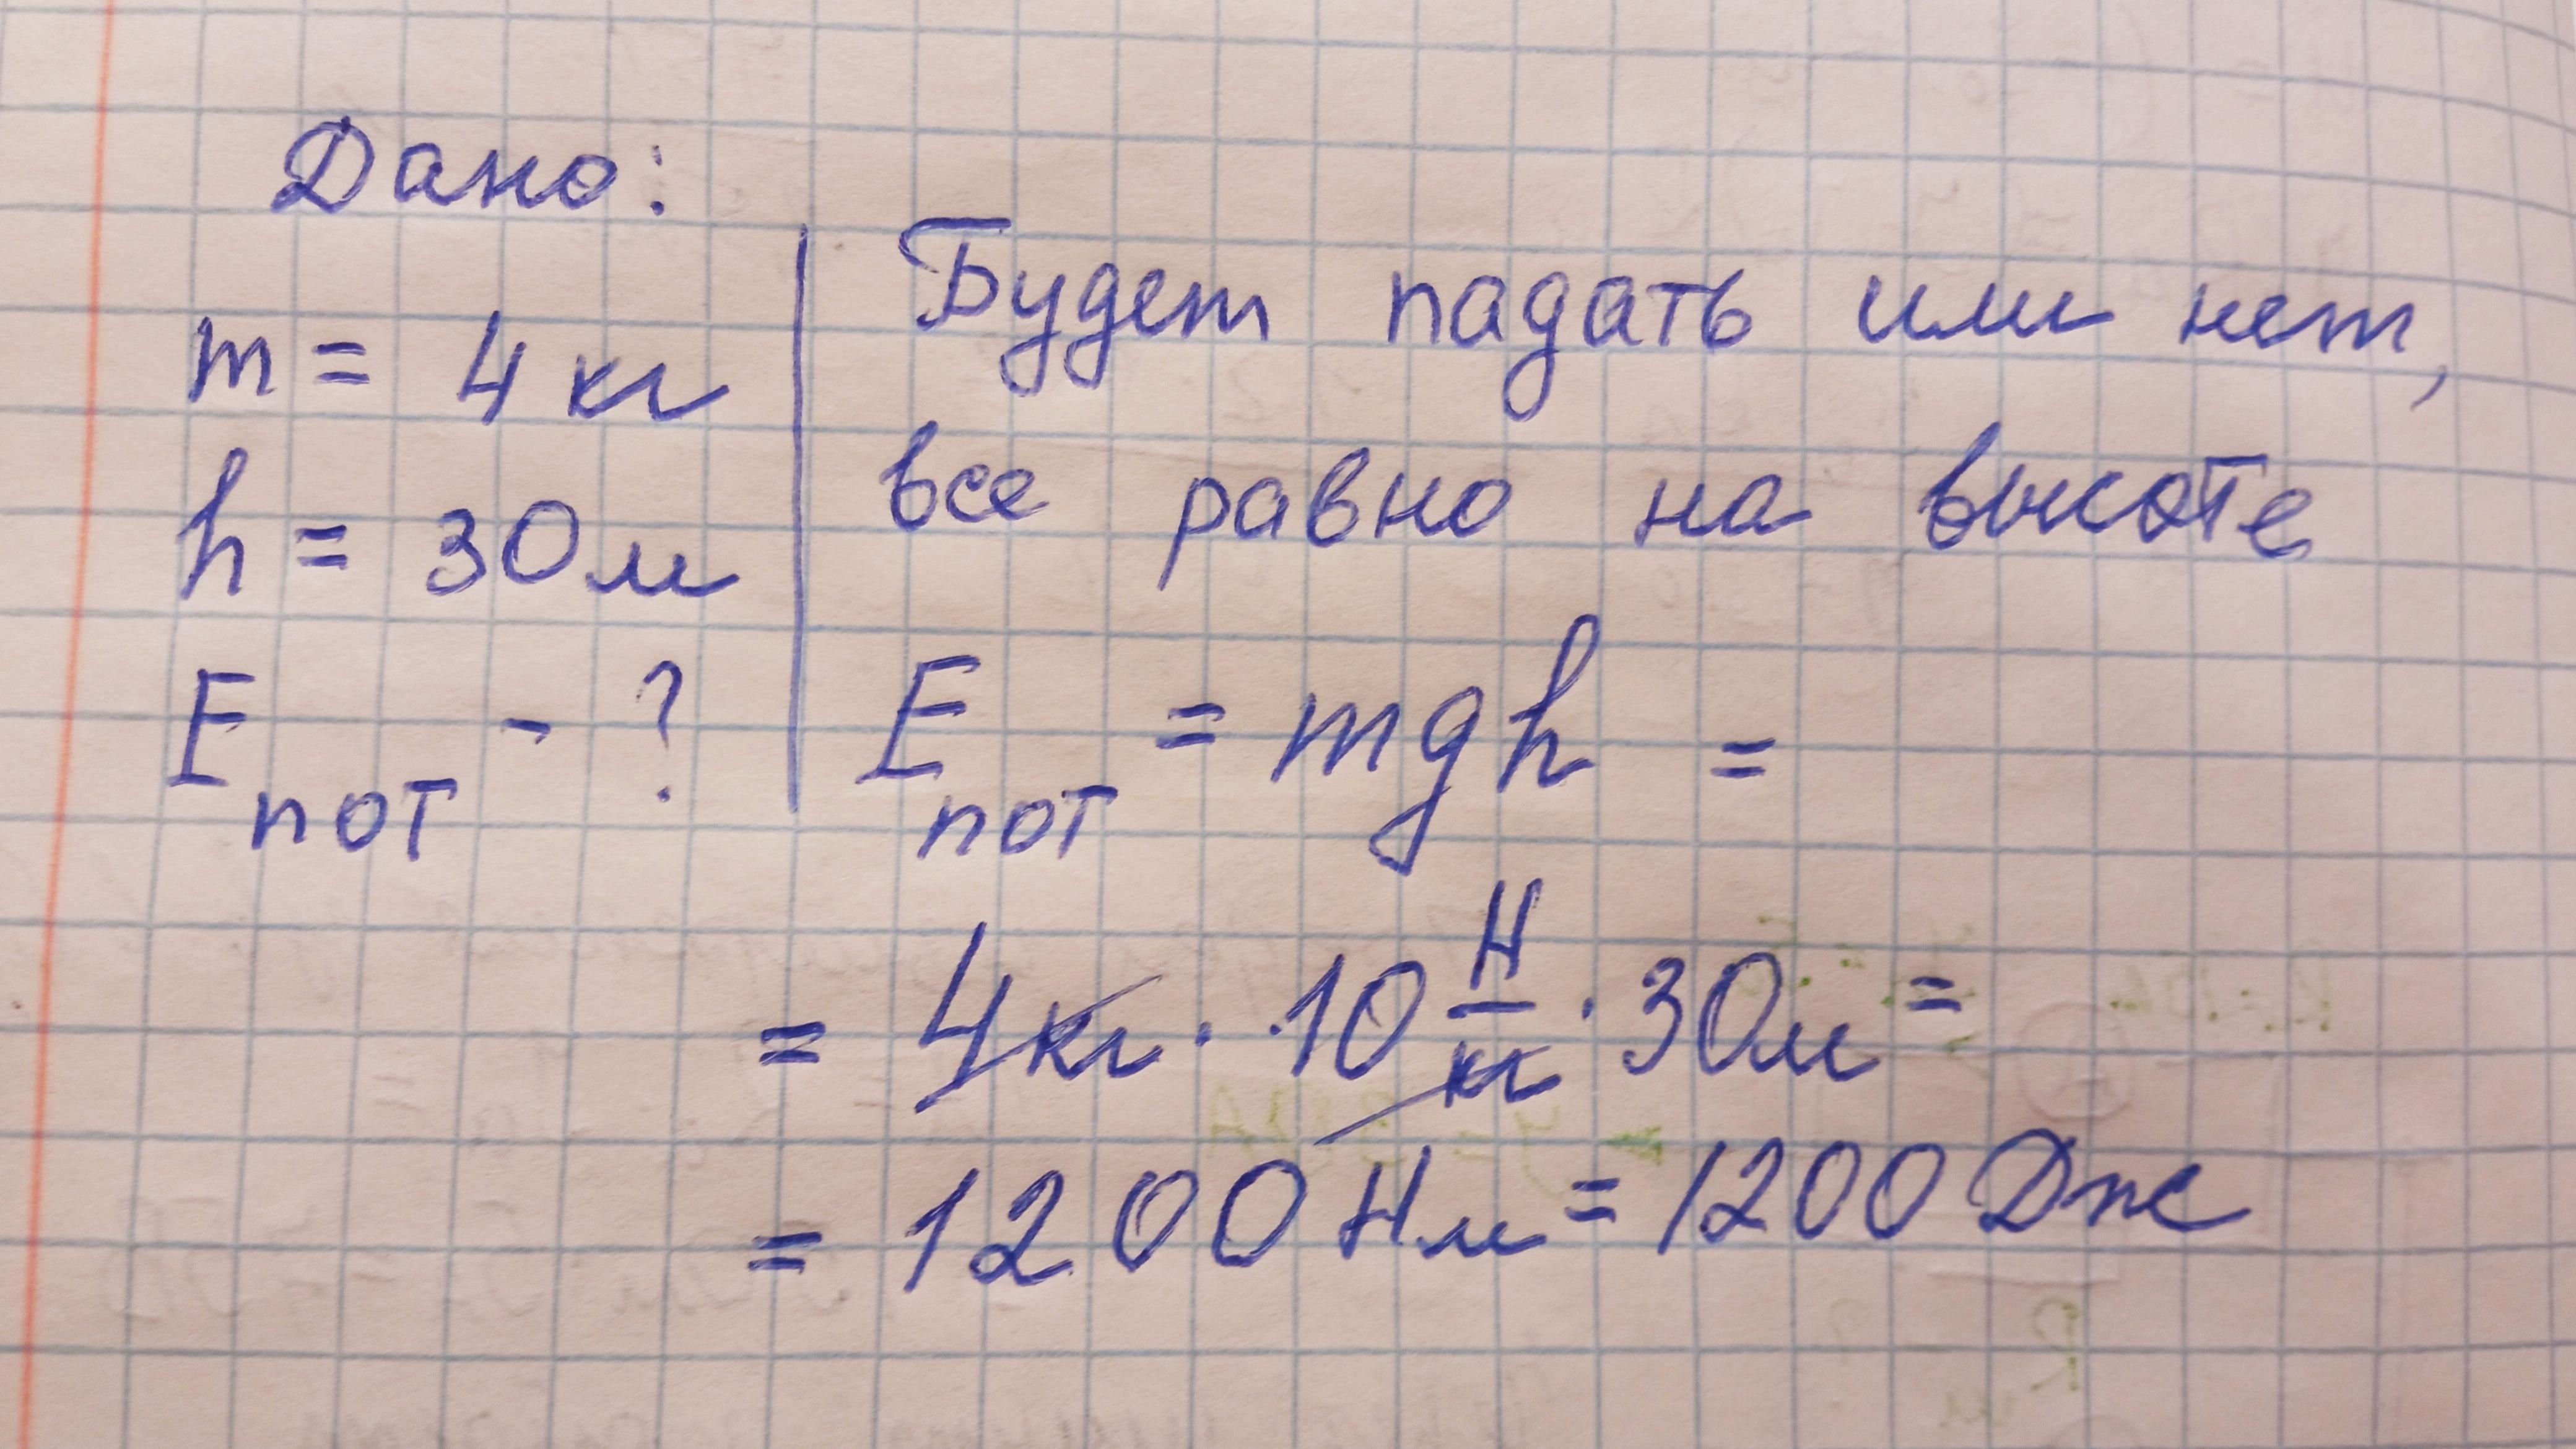 Дано:
m = 4 кг
h = 30 м
Eпот - ?
Будет падать или нет,
все равно на высоте
Eпот = mgh =
= 4 кг · 10 Н/кг · 30 м =
= 1200 Нм = 1200 Дж